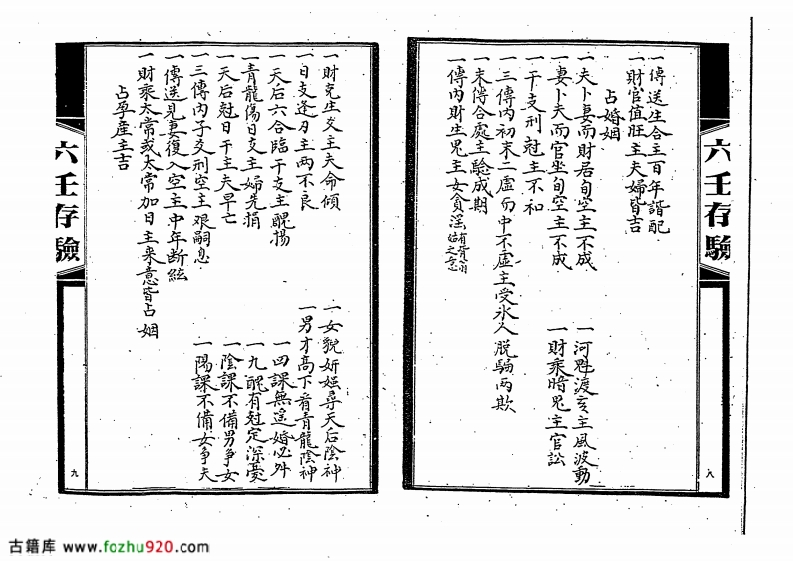 六壬存驗
一傳送生合主百年諧配
一財官值旺主夫婦皆吉
占婚姻
一夫卜妻而財居旬空主不成
一河魁渡亥主風波動
一妻卜夫而官坐旬空主不成
一財乘暗鬼主官訟
一干支刑剋主不和
一三傳內初末二虛句中不虛主受氷人脫騙兩欺
一末傳合處主驗成期
一傳內財生鬼主女貪淫
八
一財克生爻主夫命傾
一女貌妍媸尋天后陰神
一日支逢刃主兩不良
一男才高下看青龍陰神
一天后六合臨干支主醜揚
一四課無遥婚必外
一青龍傷日支主婦先損
一九醜有剋定深憂
一天后剋日干主夫早亡
一陰課不備男爭女
一三傳內子爻刑空主艰嗣息
一陽課不備女爭夫
一傳送見妻復入空主中年断絃
一財乘太常或太常加日主來意皆占姻
占孕產主吉
六壬存驗
九
古籍库 www.fozhu920.com